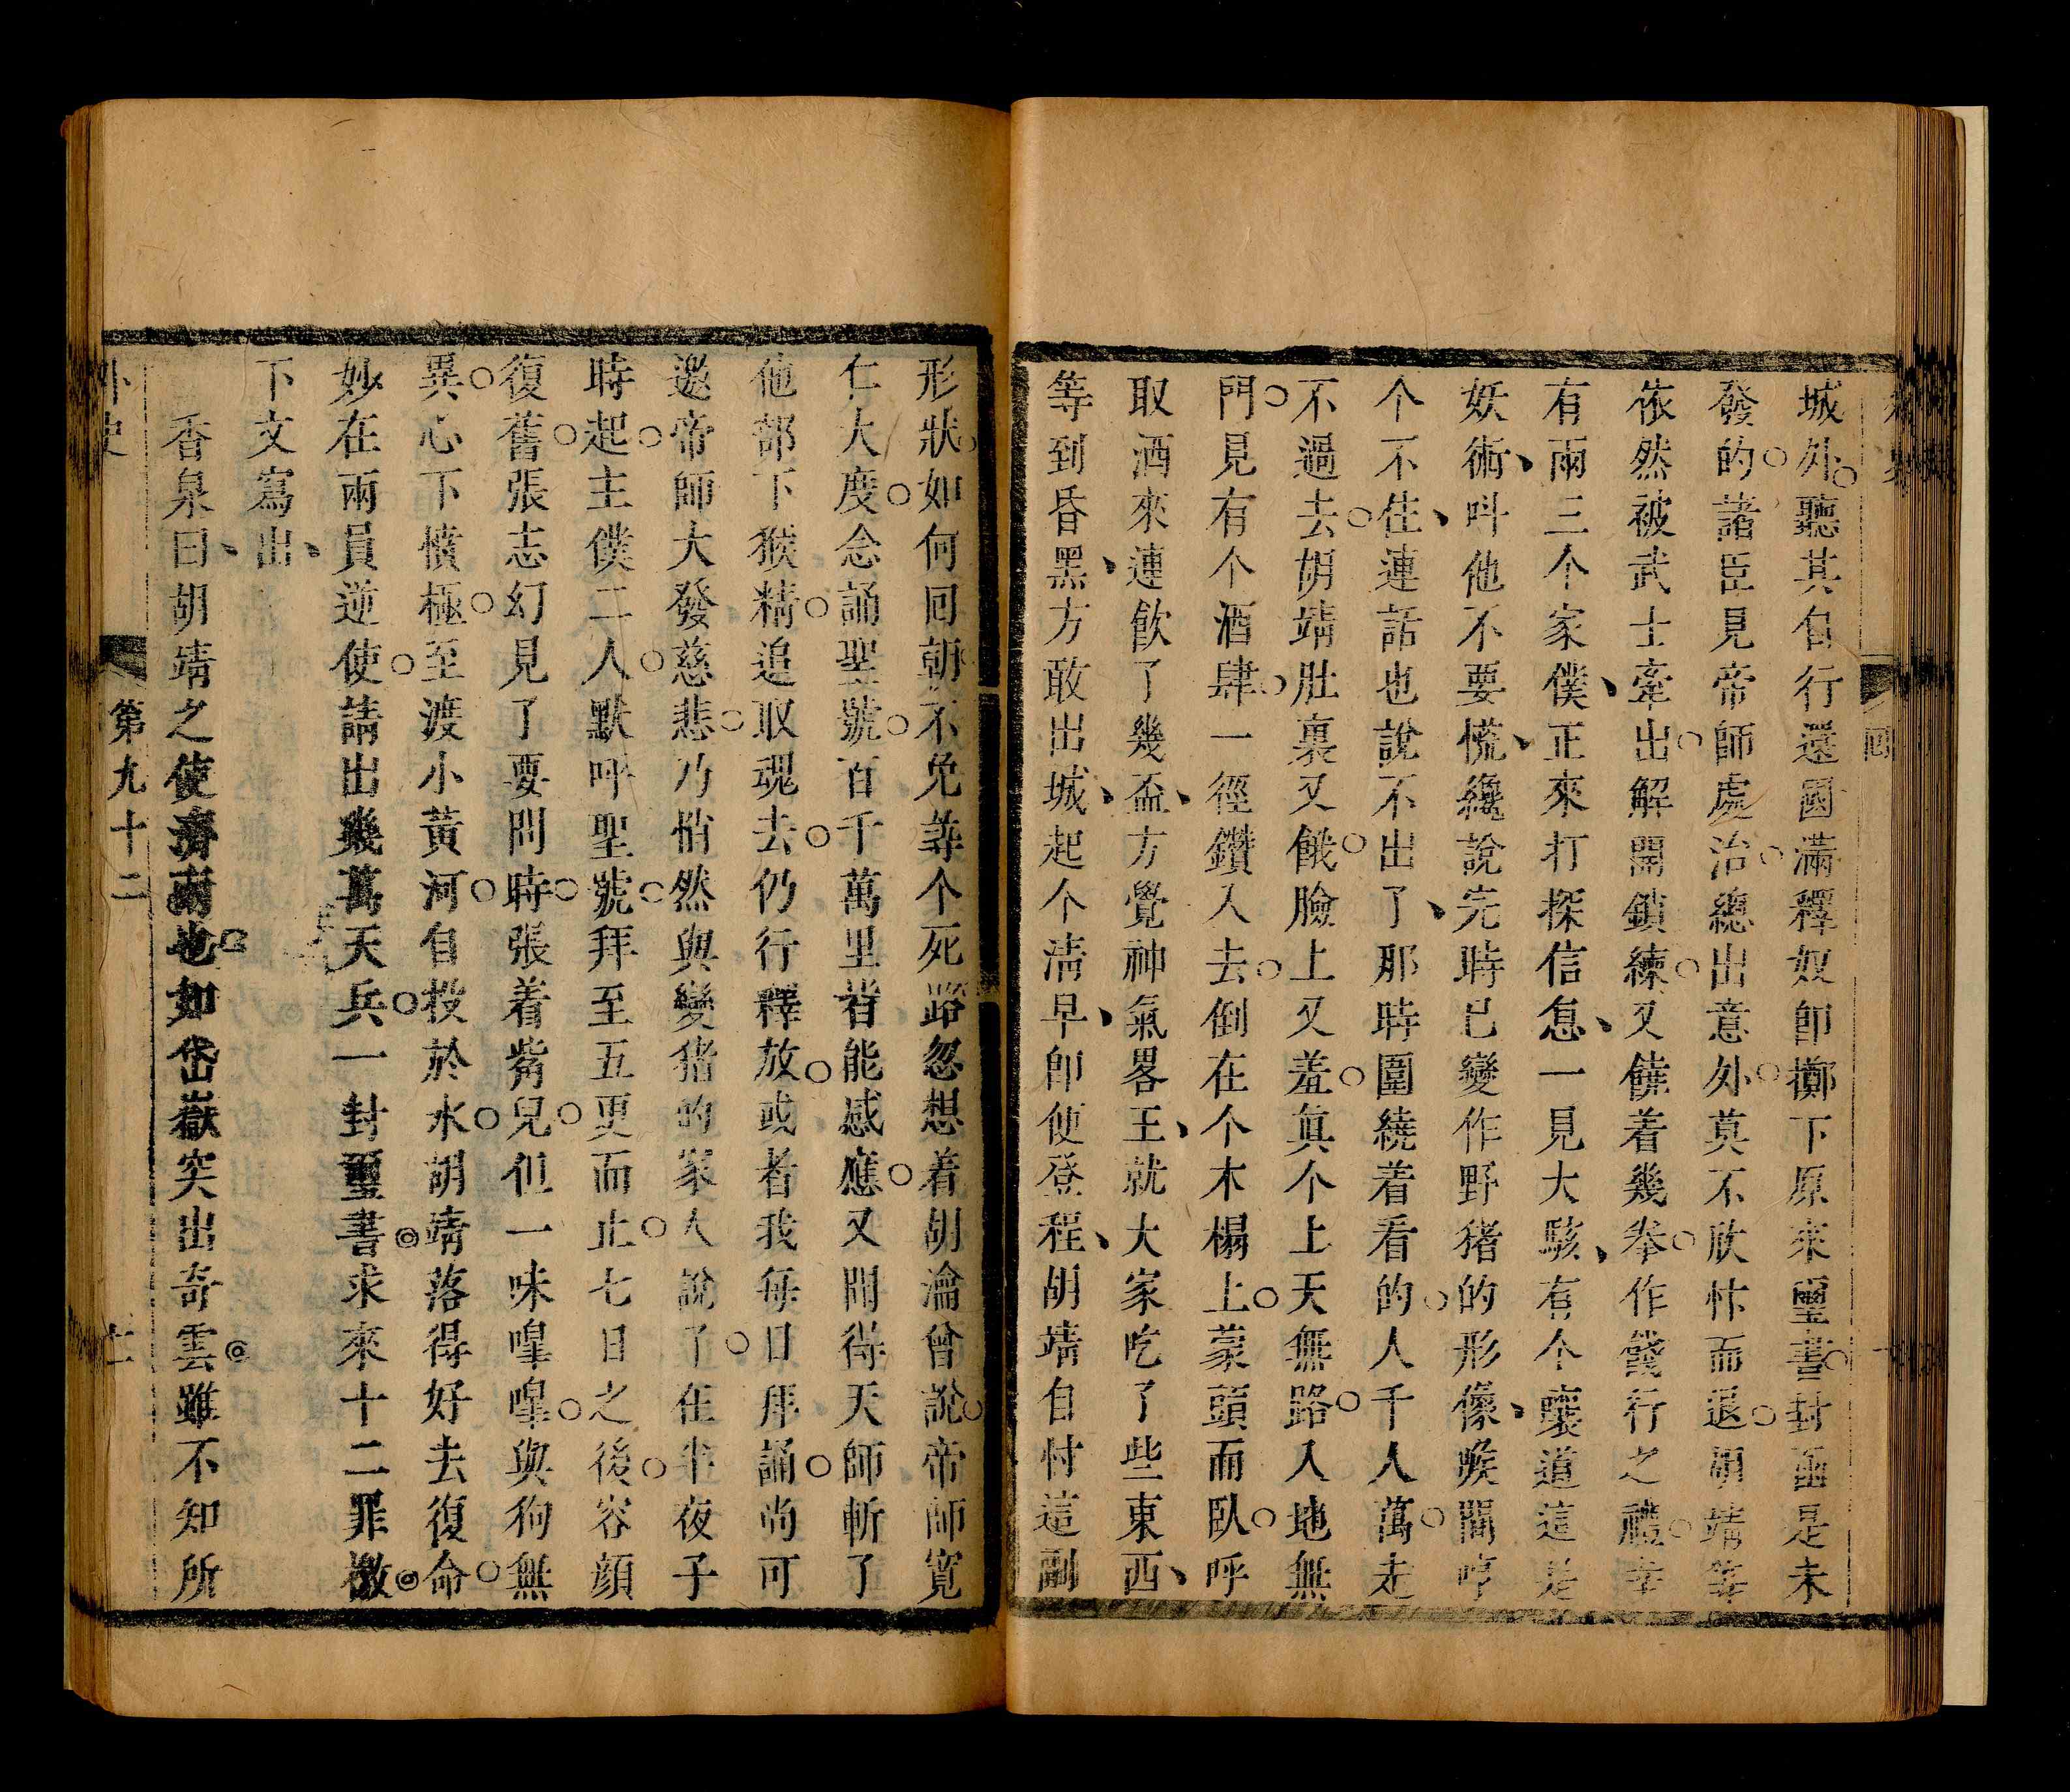 城外聽其自行還國滿釋奴卽擲下原來璽書封函是未
發的諸臣見帝師處治總出意外莫不欣忭而退胡靖等
依然被武士牽出解開鎖練又饒着幾拳作餞行之禮幸
有兩三个家僕正來打探信息一見大駭有个嚷道這是
妖術呌他不要慌纔說完時已變作野猪的形像喉間哼
个不住連話也說不出了那時圍繞着看的人千人萬走
不過去胡靖肚裏又餓臉上又羞眞个上天無路入地無
門見有个酒肆一徑鑽入去倒在个木榻上蒙頭而臥呼
取酒來連飮了幾盃方覺神氣畧王就大家吃了些東西
等到昏黑方敢出城起个淸早卽便登程胡靖自忖這副
形狀如何回朝不免尋个死路忽想着胡瀹曾說帝師寛
仁大度念誦聖號百千萬里皆能感應又聞得天師斬了
他部下猴精追取魂去仍行釋放或者我每日拜誦尚可
邀帝師大發慈悲乃悄然與變猪的家人說了在半夜子
時起主僕二人默呼聖號拜至五更而止七日之後容顔
復舊張志幻見了要問時張着嘴兒但一味嘷嘷與狗無
異心下憤極至渡小黃河自投於水胡靖落得好去復命
妙在兩員逆使請出幾萬天兵一封璽書求來十二罪檄
下文寫出
香泉曰胡靖之使濟南也如岱嶽突出奇雲雖不知所
外史
第九十二
回